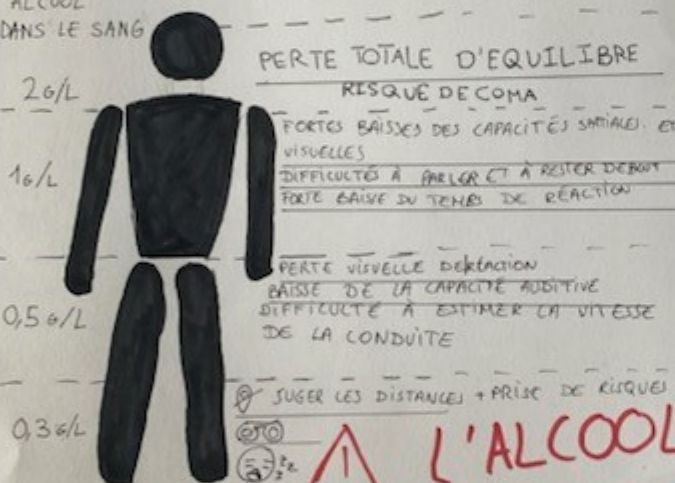 ALCOOL
DANS LE SANG
PERTE TOTALE D'EQUILIBRE
2G/L
RISQUE DE COMA
FORTES BAISSES DES CAPACITÉS SPATIALES. ET
VISUELLES
1G/L
DIFFICULTÉS À PARLER ET À RESTER DEBOUT
FORTE BAISSE DU TEMPS DE RÉACTION
PERTE VISUELLE
BAISSE DE LA CAPACITÉ AUDITIVE
0,5 G/L
DIFFICULTÉ À ESTIMER LA VITESSE
DE LA CONDUITE
JUGER LES DISTANCES + PRISE DE RISQUES
0,3 G/L
! L'ALCOOL
zzz